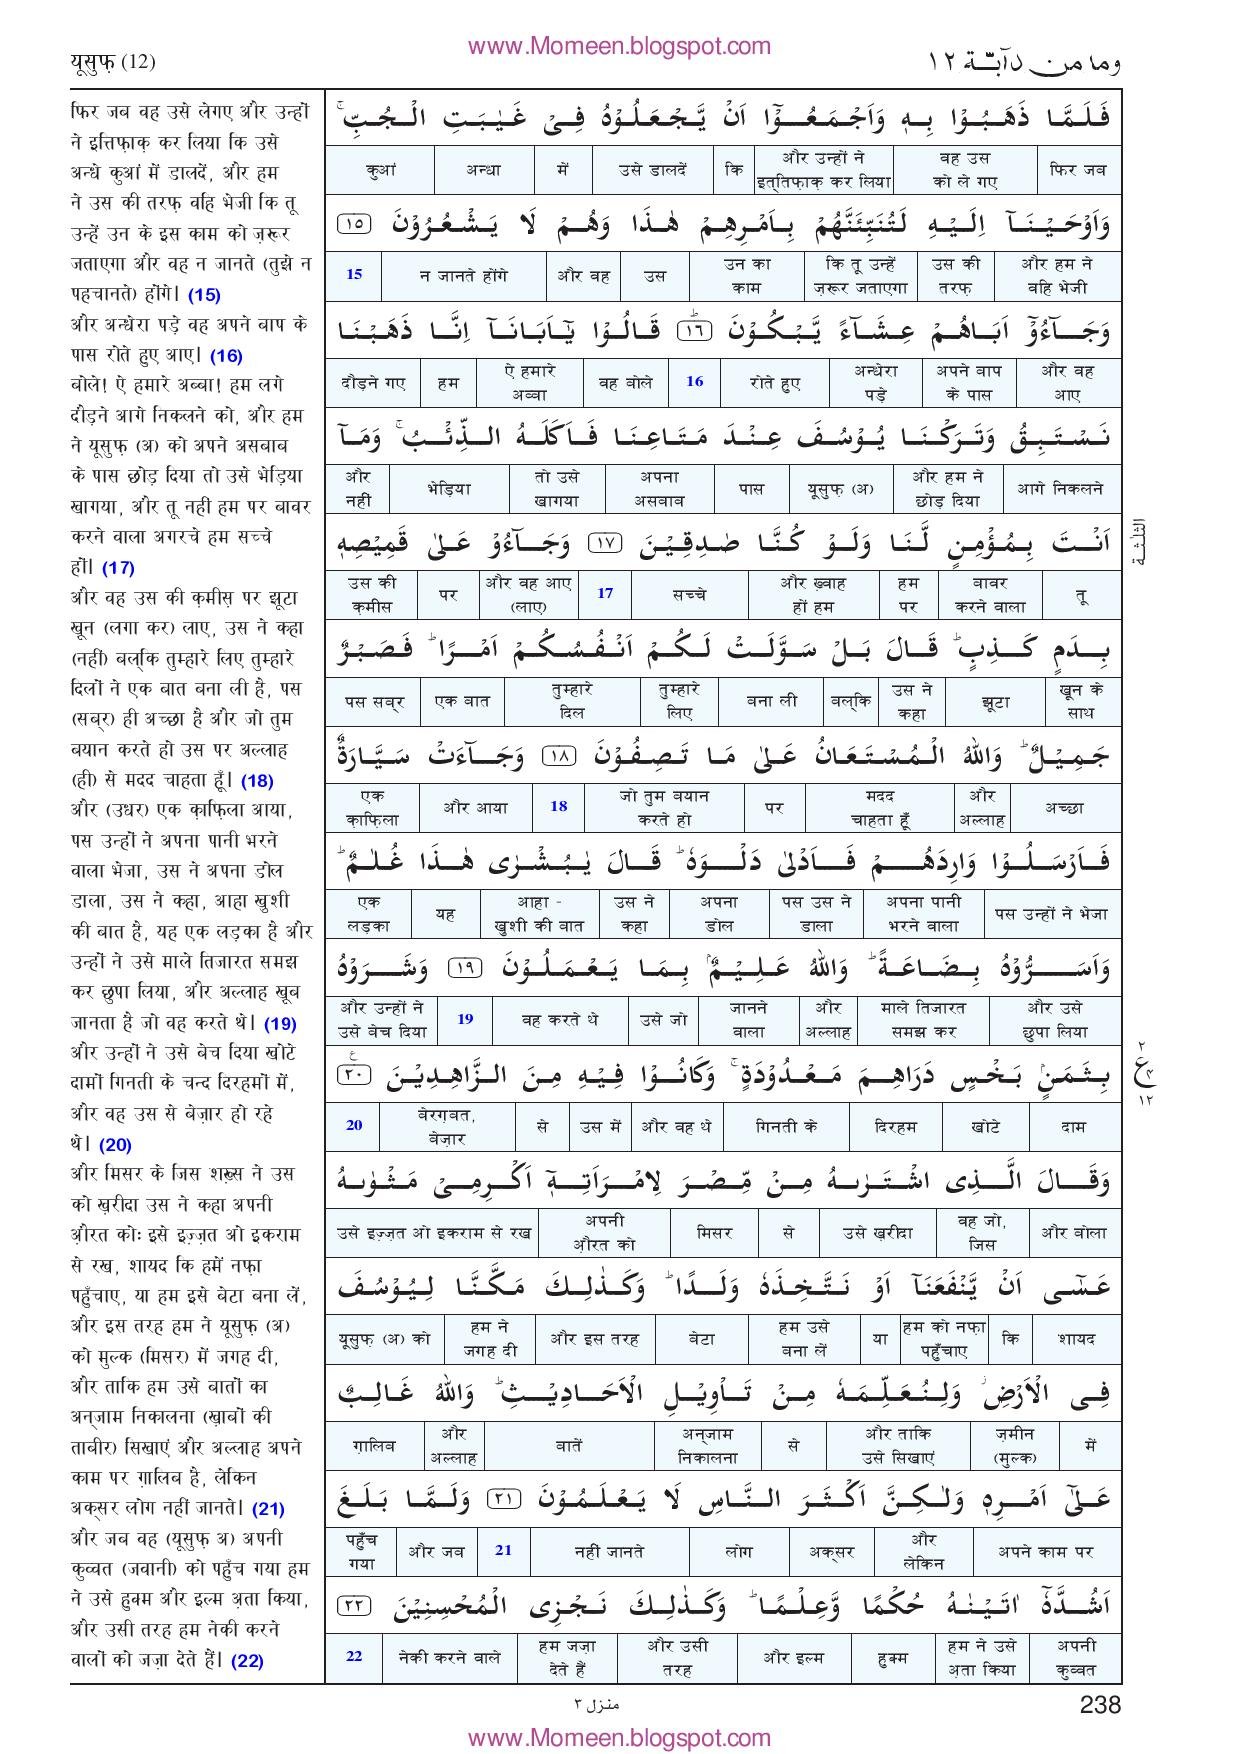 www.Momeen.blogspot.com
यूसुफ़ (12)
وما من دآبّـة ١٢
फिर जब वह उसे लेगए और उन्हों
ने इत्तिफ़ाक़ कर लिया कि उसे
अन्धे कुआं में डालदें, और हम
ने उस की तरफ़ वहि भेजी कि तू
उन्हें उन के इस काम को ज़रूर
जताएगा और वह न जानते (तुझे न
पहचानते) होंगे। (15)
और अन्धेरा पड़े वह अपने बाप के
पास रोते हुए आए। (16)
बोले! ऐ हमारे अब्बा! हम लगे
दौड़ने आगे निकलने को, और हम
ने यूसुफ़ (अ) को अपने असबाब
के पास छोड़ दिया तो उसे भेड़िया
खागया, और तू नहीं हम पर बावर
करने वाला अगरचे हम सच्चे
हों। (17)
और वह उस की क़मीस़ पर झूटा
खून (लगा कर) लाए, उस ने कहा
(नहीं) बल्कि तुम्हारे लिए तुम्हारे
दिलों ने एक बात बना ली है, पस
(सब्र) ही अच्छा है और जो तुम
बयान करते हो उस पर अल्लाह
(ही) से मदद चाहता हूँ। (18)
और (उधर) एक क़ाफ़िला आया,
पस उन्हों ने अपना पानी भरने
वाला भेजा, उस ने अपना डोल
डाला, उस ने कहा, आहा खुशी
की बात है, यह एक लड़का है और
उन्हों ने उसे माले तिजारत समझ
कर छुपा लिया, और अल्लाह खूब
जानता है जो वह करते थे। (19)
और उन्हों ने उसे बेच दिया खोटे
दामों गिनती के चन्द दिरहमों में,
और वह उस से बेज़ार हो रहे
थे। (20)
और मिसर के जिस शख़्स ने उस
को ख़रीदा उस ने कहा अपनी
औ़रत कोः इसे इज़्ज़त ओ इकराम
से रख, शायद कि हमें नफ़ा
पहुँचाए, या हम इसे बेटा बना लें,
और इस तरह हम ने यूसुफ़ (अ)
को मुल्क (मिसर) में जगह दी,
और ताकि हम उसे बातों का
अन्जाम निकालना (ख़ाबों की
ताबीर) सिखाएं और अल्लाह अपने
काम पर ग़ालिब है, लेकिन
अक्सर लोग नहीं जानते। (21)
और जब वह (यूसुफ़ अ) अपनी
कुव्वत (जवानी) को पहुँच गया हम
ने उसे हुक्म और इल्म अ़ता किया,
और उसी तरह हम नेकी करने
वालों को जज़ा देते हैं। (22)
فَلَمَّا ذَهَبُوْا بِهٖ وَاَجْمَعُوْٓا اَنْ يَّجْعَلُوْهُ فِيْ غَيٰبَتِ الْجُبِّ ۚ
फिर जब | वह उस को ले गए | और उन्हों ने इत्तिफ़ाक़ कर लिया | कि | उसे डालदें | में | अन्धा | कुआं
وَاَوْحَيْنَآ اِلَيْهِ لَتُنَبِّئَنَّهُمْ بِاَمْرِهِمْ هٰذَا وَهُمْ لَا يَشْعُرُوْنَ ﴿١٥﴾
और हम ने वहि भेजी | उस की तरफ़ | कि तू उन्हें ज़रूर जताएगा | उन का काम | उस | और वह | न जानते होंगे | 15
وَجَآءُوْٓ اَبَاهُمْ عِشَآءً يَّبْكُوْنَ ﴿١٦﴾ؕ قَالُوْا يٰٓاَبَانَآ اِنَّا ذَهَبْنَا
और वह आए | अपने बाप के पास | अन्धेरा पड़े | रोते हुए | 16 | वह बोले | ऐ हमारे अब्बा | हम | दौड़ने गए
نَسْتَبِقُ وَتَرَكْنَا يُوْسُفَ عِنْدَ مَتَاعِنَا فَاَكَلَهُ الذِّئْبُ ۚ وَمَآ
आगे निकलने | और हम ने छोड़ दिया | यूसुफ़ (अ) | पास | अपना असबाब | तो उसे खागया | भेड़िया | और नहीं
اَنْتَ بِمُؤْمِنٍ لَّنَا وَلَوْ كُنَّا صٰدِقِيْنَ ﴿١٧﴾ وَجَآءُوْ عَلٰى قَمِيْصِهٖ
तू | बावर करने वाला | हम पर | और ख़्वाह हों हम | सच्चे | 17 | और वह आए (लाए) | पर | उस की क़मीस
بِدَمٍ كَذِبٍ ؕ قَالَ بَلْ سَوَّلَتْ لَكُمْ اَنْفُسُكُمْ اَمْرًا ؕ فَصَبْرٌ
खून के साथ | झूटा | उस ने कहा | बल्कि | बना ली | तुम्हारे लिए | तुम्हारे दिल | एक बात | पस सब्र
جَمِيْلٌ ؕ وَاللّٰهُ الْمُسْتَعَانُ عَلٰى مَا تَصِفُوْنَ ﴿١٨﴾ وَجَآءَتْ سَيَّارَةٌ
अच्छा | और अल्लाह | मदद चाहता हूँ | पर | जो तुम बयान करते हो | 18 | और आया | एक क़ाफ़िला
فَاَرْسَلُوْا وَارِدَهُمْ فَاَدْلٰى دَلْوَهٗ ؕ قَالَ يٰبُشْرٰى هٰذَا غُلٰمٌ ؕ
पस उन्हों ने भेजा | अपना पानी भरने वाला | पस उस ने डाला | अपना डोल | उस ने कहा | आहा - खुशी की बात | यह | एक लड़का
وَاَسَرُّوْهُ بِضَاعَةً ؕ وَاللّٰهُ عَلِيْمٌۢ بِمَا يَعْمَلُوْنَ ﴿١٩﴾ وَشَرَوْهُ
और उसे छुपा लिया | माले तिजारत समझ कर | और अल्लाह | जानने वाला | उसे जो | वह करते थे | 19 | और उन्हों ने उसे बेच दिया
بِثَمَنٍۢ بَخْسٍ دَرَاهِمَ مَعْدُوْدَةٍ ۚ وَكَانُوْا فِيْهِ مِنَ الزَّاهِدِيْنَ ﴿٢٠﴾ ع
दाम | खोटे | दिरहम | गिनती के | और वह थे | उस में | से | बेरग़बत, बेज़ार | 20
وَقَالَ الَّذِى اشْتَرٰىهُ مِنْ مِّصْرَ لِامْرَاَتِهٖٓ اَكْرِمِيْ مَثْوٰىهُ
और बोला | वह जो, जिस | उसे ख़रीदा | से | मिसर | अपनी औ़रत को | उसे इज़्ज़त ओ इकराम से रख
عَسٰٓى اَنْ يَّنْفَعَنَآ اَوْ نَتَّخِذَهٗ وَلَدًا ؕ وَكَذٰلِكَ مَكَّنَّا لِيُوْسُفَ
शायद | कि | हम को नफ़ा पहुँचाए | या | हम उसे बना लें | बेटा | और इस तरह | हम ने जगह दी | यूसुफ़ (अ) को
فِى الْاَرْضِ ؗ وَلِنُعَلِّمَهٗ مِنْ تَاْوِيْلِ الْاَحَادِيْثِ ؕ وَاللّٰهُ غَالِبٌ
में | ज़मीन (मुल्क) | और ताकि उसे सिखाएं | से | अन्जाम निकालना | बातें | और अल्लाह | ग़ालिब
عَلٰٓى اَمْرِهٖ وَلٰكِنَّ اَكْثَرَ النَّاسِ لَا يَعْلَمُوْنَ ﴿٢١﴾ وَلَمَّا بَلَغَ
अपने काम पर | और लेकिन | अक्सर | लोग | नहीं जानते | 21 | और जब | पहुँच गया
اَشُدَّهٗٓ اٰتَيْنٰهُ حُكْمًا وَّعِلْمًا ؕ وَكَذٰلِكَ نَجْزِى الْمُحْسِنِيْنَ ﴿٢٢﴾
अपनी कुव्वत | हम ने उसे अ़ता किया | हुक्म | और इल्म | और उसी तरह | हम जज़ा देते हैं | नेकी करने वाले | 22
الثلثة
٢
ع
٤
١٢
منزل ٣
238
www.Momeen.blogspot.com